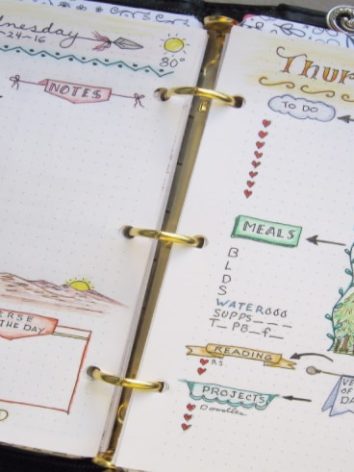 nesday
-24-16
80°
NOTES
ERSE
THE DAY
Thur
TO DO
MEALS
B
L
D
S
WATER
SUPPS_ _ _ _
T_ PB_ f_
READING
BS
PROJECTS
Doodles
VE
OF
DA